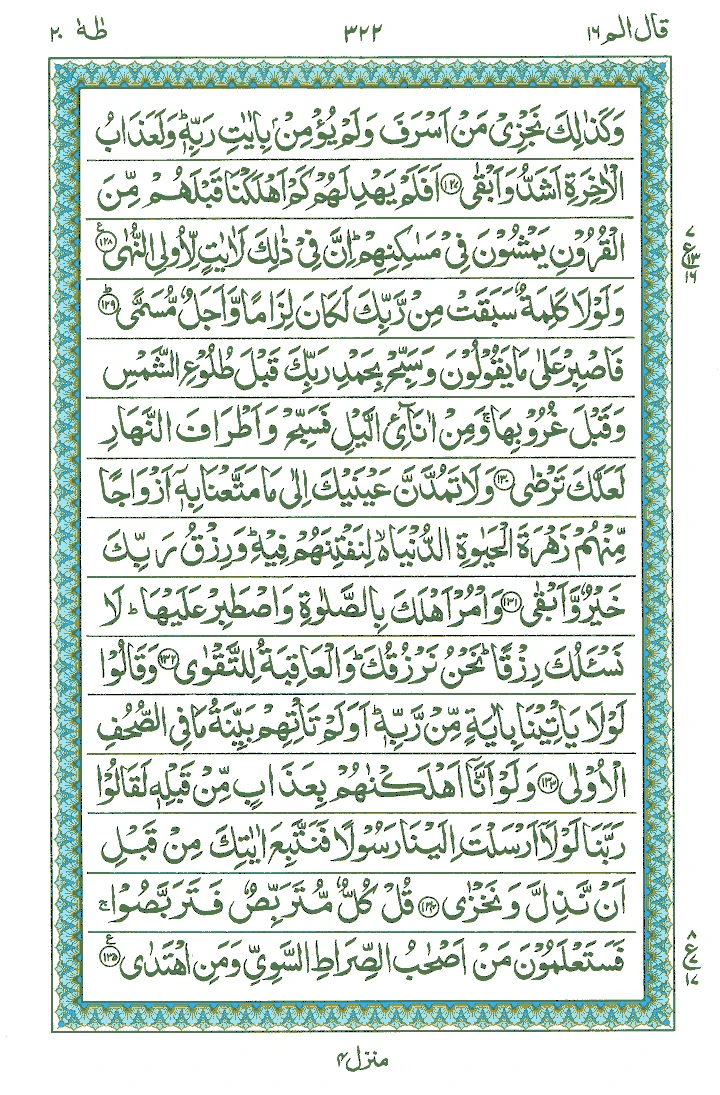 قال الم ١٦ ٣٢٢ طٰهٰ ٢٠
وَكَذٰلِكَ نَجْزِیْ مَنْ اَسْرَفَ وَلَمْ یُؤْمِنْۢ بِاٰیٰتِ رَبِّهٖ ؕ وَلَعَذَابُ
الْاٰخِرَةِ اَشَدُّ وَاَبْقٰی ﴿۱۲۷﴾ اَفَلَمْ یَهْدِ لَهُمْ كَمْ اَهْلَكْنَا قَبْلَهُمْ مِّنَ
الْقُرُوْنِ یَمْشُوْنَ فِیْ مَسٰكِنِهِمْ ؕ اِنَّ فِیْ ذٰلِكَ لَاٰیٰتٍ لِّاُولِی النُّهٰی ﴿۱۲۸﴾ ع
٧ ع ١٣ ١٦
وَلَوْلَا كَلِمَةٌ سَبَقَتْ مِنْ رَّبِّكَ لَكَانَ لِزَامًا وَّاَجَلٌ مُّسَمًّی ﴿۱۲۹﴾ ؕ
فَاصْبِرْ عَلٰی مَا یَقُوْلُوْنَ وَسَبِّحْ بِحَمْدِ رَبِّكَ قَبْلَ طُلُوْعِ الشَّمْسِ
وَقَبْلَ غُرُوْبِهَا ۚ وَمِنْ اٰنَآئِ الَّیْلِ فَسَبِّحْ وَاَطْرَافَ النَّهَارِ
لَعَلَّكَ تَرْضٰی ﴿۱۳۰﴾ وَلَا تَمُدَّنَّ عَیْنَیْكَ اِلٰی مَا مَتَّعْنَا بِهٖۤ اَزْوَاجًا
مِّنْهُمْ زَهْرَةَ الْحَیٰوةِ الدُّنْیَا ۙ۬ لِنَفْتِنَهُمْ فِیْهِ ؕ وَرِزْقُ رَبِّكَ
خَیْرٌ وَّاَبْقٰی ﴿۱۳۱﴾ وَاْمُرْ اَهْلَكَ بِالصَّلٰوةِ وَاصْطَبِرْ عَلَیْهَا ؕ لَا
نَسْـَٔلُكَ رِزْقًا ؕ نَحْنُ نَرْزُقُكَ ؕ وَالْعَاقِبَةُ لِلتَّقْوٰی ﴿۱۳۲﴾ وَقَالُوْا
لَوْلَا یَاْتِیْنَا بِاٰیَةٍ مِّنْ رَّبِّهٖ ؕ اَوَلَمْ تَاْتِهِمْ بَیِّنَةُ مَا فِی الصُّحُفِ
الْاُوْلٰی ﴿۱۳۳﴾ وَلَوْ اَنَّاۤ اَهْلَكْنٰهُمْ بِعَذَابٍ مِّنْ قَبْلِهٖ لَقَالُوْا
رَبَّنَا لَوْلَاۤ اَرْسَلْتَ اِلَیْنَا رَسُوْلًا فَنَتَّبِعَ اٰیٰتِكَ مِنْ قَبْلِ
اَنْ نَّذِلَّ وَنَخْزٰی ﴿۱۳۴﴾ قُلْ كُلٌّ مُّتَرَبِّصٌ فَتَرَبَّصُوْا ۚ
فَسَتَعْلَمُوْنَ مَنْ اَصْحٰبُ الصِّرَاطِ السَّوِیِّ وَمَنِ اهْتَدٰی ﴿۱۳۵﴾ ع
٨ ع ٧ ١٧
منزل ۴